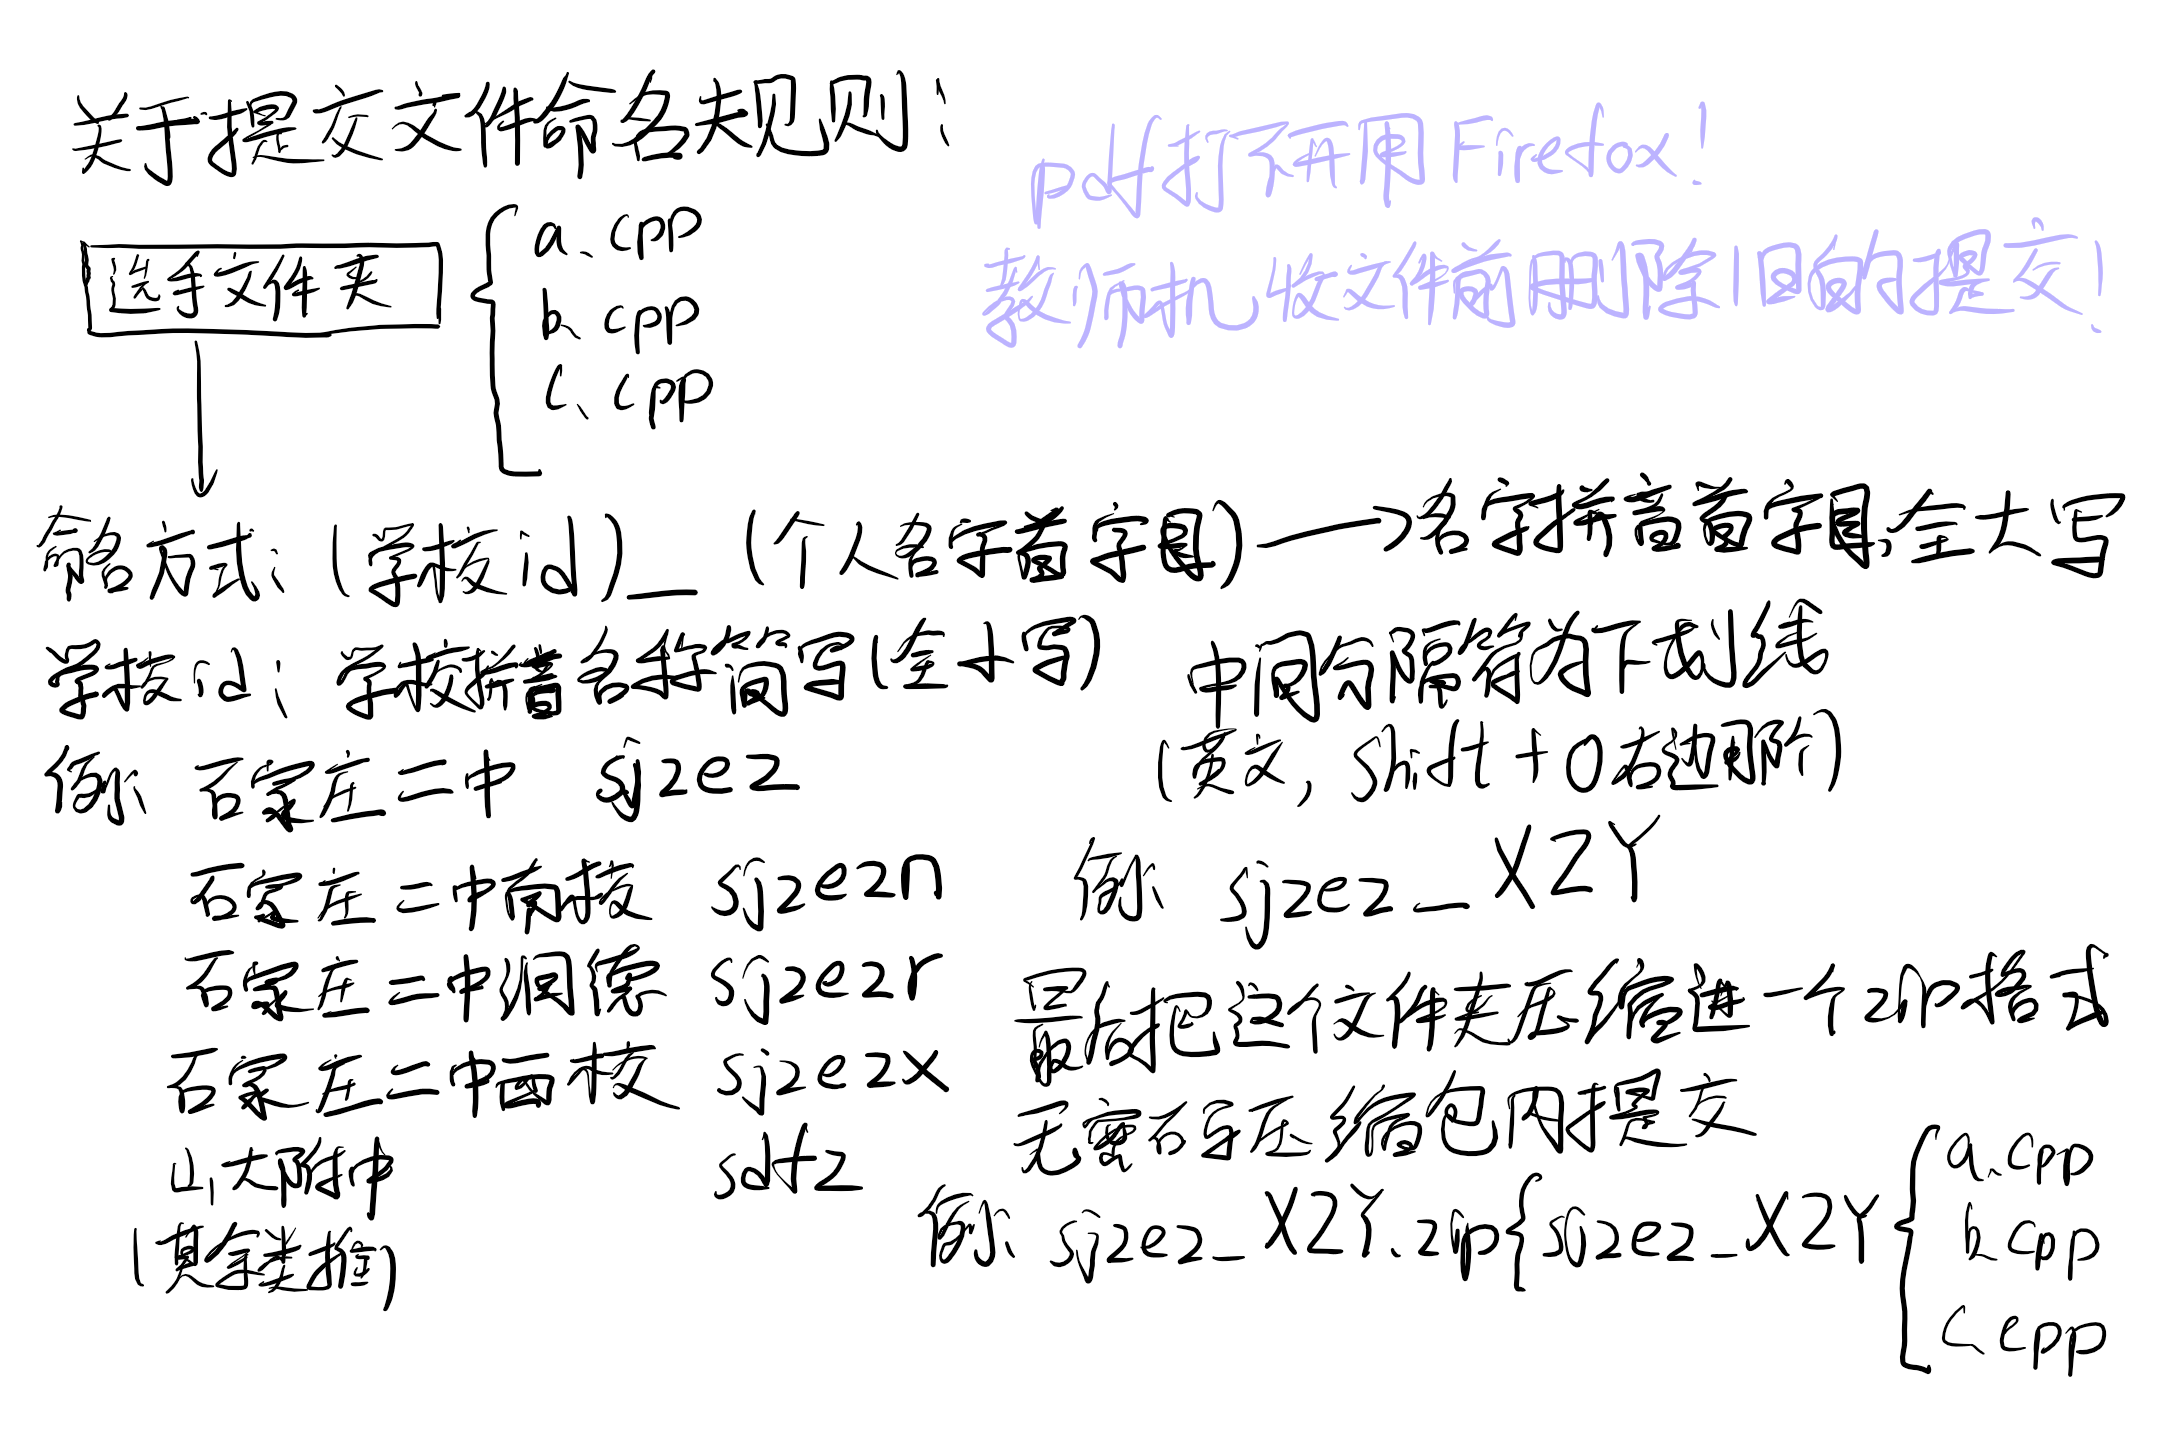 关于提交文件命名规则:
pdf打不开用Firefox!
教师机收文件前删除旧的提交!
选手文件夹
a.cpp
b.cpp
c.cpp
命名方式:(学校id)_(个人名字首字母)→名字拼音首字母,全大写
学校id:学校拼音名称简写(全小写)
中间分隔符为下划线
(英文,Shift+0右边那个)
例:石家庄二中 sjzez
石家庄二中南校 sjzezn
石家庄二中润德 sjzezr
石家庄二中西校 sjzezx
山大附中 sdfz
(其余类推)
例:sjzez_XZY
最后把这个文件夹压缩进一个zip格式
无密码压缩包内提交
例:sjzez_XZY.zip{sjzez_XZY{
a.cpp
b.cpp
c.cpp